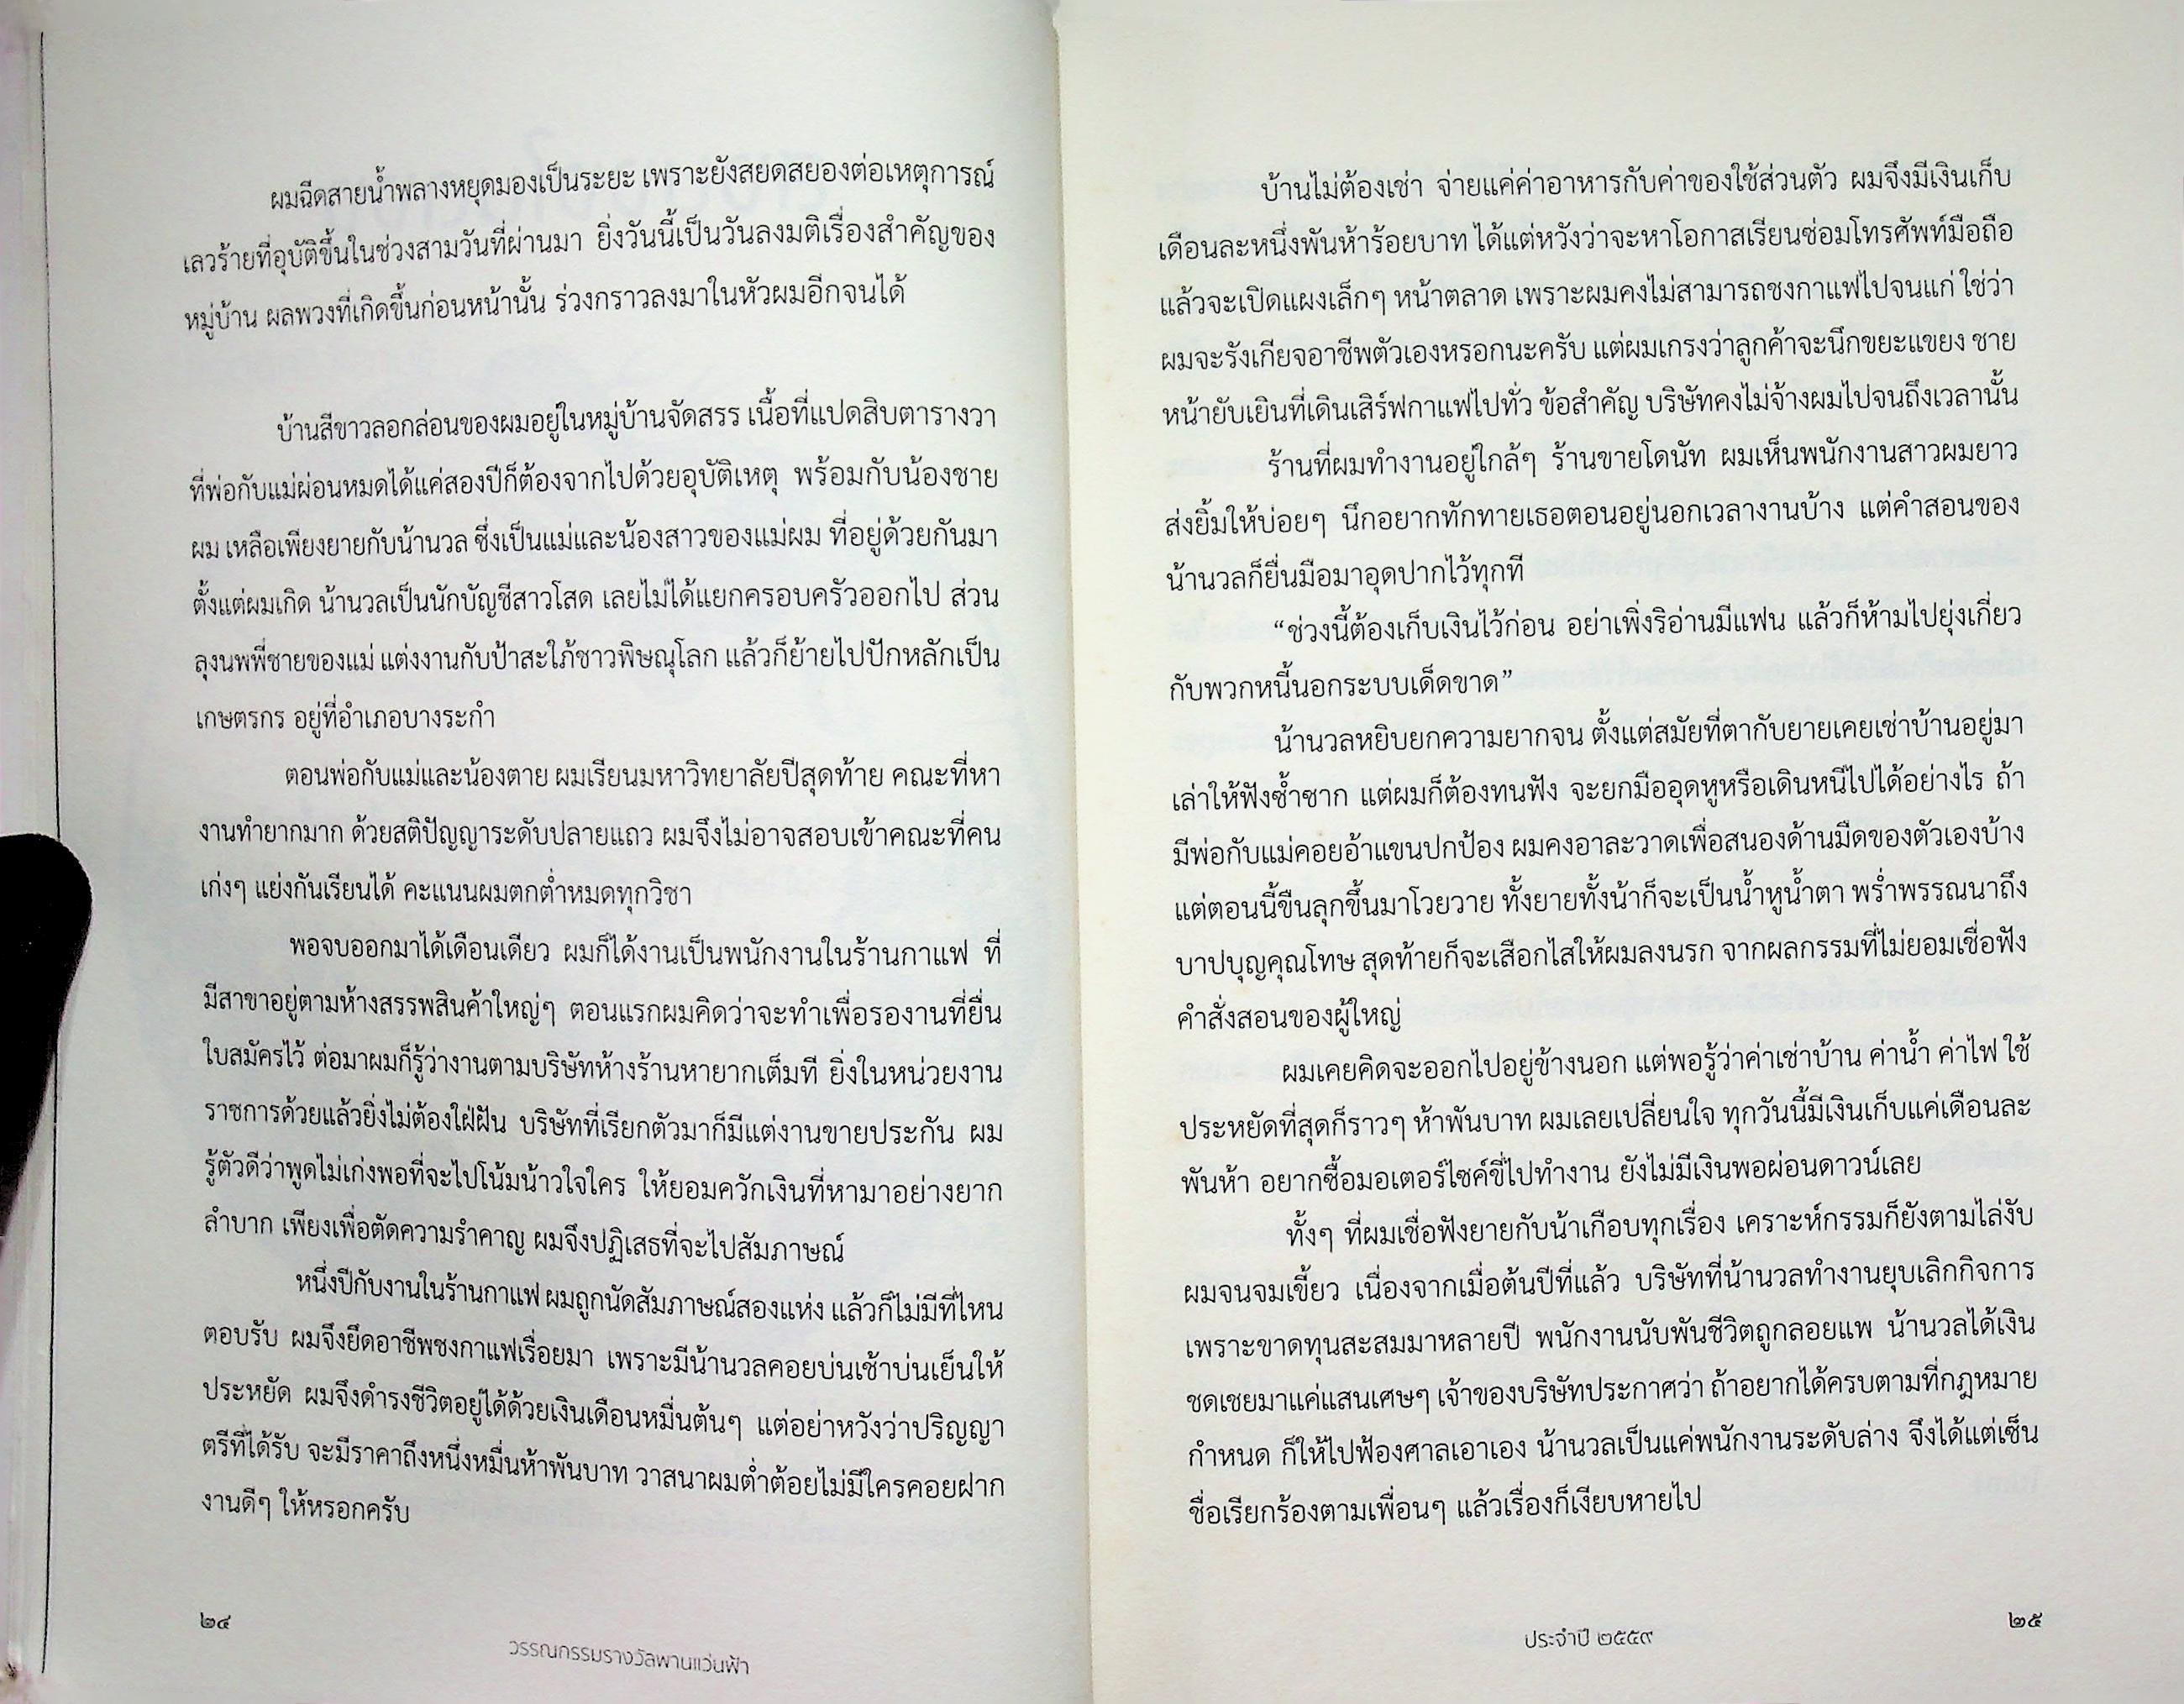 ผมฉีดสายน้ำพลางหยุดมองเป็นระยะ เพราะยังสยดสยองต่อเหตุการณ์
เลวร้ายที่อุบัติขึ้นในช่วงสามวันที่ผ่านมา ยิ่งวันนี้เป็นวันลงมติเรื่องสำคัญของ
หมู่บ้าน ผลพวงที่เกิดขึ้นก่อนหน้านั้น ร่วงกราวลงมาในหัวผมอีกจนได้
บ้านสีขาวลอกล่อนของผมอยู่ในหมู่บ้านจัดสรร เนื้อที่แปดสิบตารางวา
ที่พ่อกับแม่ผ่อนหมดได้แค่สองปีก็ต้องจากไปด้วยอุบัติเหตุ พร้อมกับน้องชาย
ผม เหลือเพียงยายกับน้านวล ซึ่งเป็นแม่และน้องสาวของแม่ผม ที่อยู่ด้วยกันมา
ตั้งแต่ผมเกิด น้านวลเป็นนักบัญชีสาวโสด เลยไม่ได้แยกครอบครัวออกไป ส่วน
ลุงนพพี่ชายของแม่ แต่งงานกับป้าสะใภ้ชาวพิษณุโลก แล้วก็ย้ายไปปักหลักเป็น
เกษตรกร อยู่ที่อำเภอบางระกำ
ตอนพ่อกับแม่และน้องตาย ผมเรียนมหาวิทยาลัยปีสุดท้าย คณะที่หา
งานทำยากมาก ด้วยสติปัญญาระดับปลายแถว ผมจึงไม่อาจสอบเข้าคณะที่คน
เก่งๆ แย่งกันเรียนได้ คะแนนผมตกต่ำหมดทุกวิชา
พอจบออกมาได้เดือนเดียว ผมก็ได้งานเป็นพนักงานในร้านกาแฟ ที่
มีสาขาอยู่ตามห้างสรรพสินค้าใหญ่ๆ ตอนแรกผมคิดว่าจะทำเพื่อรองานที่ยื่น
ใบสมัครไว้ ต่อมาผมก็รู้ว่างานตามบริษัทห้างร้านหายากเต็มที ยิ่งในหน่วยงาน
ราชการด้วยแล้วยิ่งไม่ต้องใฝ่ฝัน บริษัทที่เรียกตัวมาก็มีแต่งานขายประกัน ผม
รู้ตัวดีว่าพูดไม่เก่งพอที่จะไปโน้มน้าวใจใคร ให้ยอมควักเงินที่หามาอย่างยาก
ลำบาก เพียงเพื่อตัดความรำคาญ ผมจึงปฏิเสธที่จะไปสัมภาษณ์
หนึ่งปีกับงานในร้านกาแฟ ผมถูกนัดสัมภาษณ์สองแห่ง แล้วก็ไม่มีที่ไหน
ตอบรับ ผมจึงยึดอาชีพชงกาแฟเรื่อยมา เพราะมีน้านวลคอยบ่นเช้าบ่นเย็นให้
ประหยัด ผมจึงดำรงชีวิตอยู่ได้ด้วยเงินเดือนหมื่นต้นๆ แต่อย่าหวังว่าปริญญา
ตรีที่ได้รับ จะมีราคาถึงหนึ่งหมื่นห้าพันบาท วาสนาผมต่ำต้อยไม่มีใครคอยฝาก
งานดีๆ ให้หรอกครับ
๒๔
วรรณกรรมรางวัลพานแว่นฟ้า
บ้านไม่ต้องเช่า จ่ายแค่ค่าอาหารกับค่าของใช้ส่วนตัว ผมจึงมีเงินเก็บ
เดือนละหนึ่งพันห้าร้อยบาท ได้แต่หวังว่าจะหาโอกาสเรียนซ่อมโทรศัพท์มือถือ
แล้วจะเปิดแผงเล็กๆ หน้าตลาด เพราะผมคงไม่สามารถชงกาแฟไปจนแก่ ใช่ว่า
ผมจะรังเกียจอาชีพตัวเองหรอกนะครับ แต่ผมเกรงว่าลูกค้าจะนึกขยะแขยง ชาย
หน้ายับเยินที่เดินเสิร์ฟกาแฟไปทั่ว ข้อสำคัญ บริษัทคงไม่จ้างผมไปจนถึงเวลานั้น
ร้านที่ผมทำงานอยู่ใกล้ๆ ร้านขายโดนัท ผมเห็นพนักงานสาวผมยาว
ส่งยิ้มให้บ่อยๆ นึกอยากทักทายเธอตอนอยู่นอกเวลางานบ้าง แต่คำสอนของ
น้านวลก็ยื่นมือมาอุดปากไว้ทุกที
“ช่วงนี้ต้องเก็บเงินไว้ก่อน อย่าเพิ่งริอ่านมีแฟน แล้วก็ห้ามไปยุ่งเกี่ยว
กับพวกหนี้นอกระบบเด็ดขาด”
น้านวลหยิบยกความยากจน ตั้งแต่สมัยที่ตากับยายเคยเช่าบ้านอยู่มา
เล่าให้ฟังซ้ำซาก แต่ผมก็ต้องทนฟัง จะยกมืออุดหูหรือเดินหนีไปได้อย่างไร ถ้า
มีพ่อกับแม่คอยอ้าแขนปกป้อง ผมคงอาละวาดเพื่อสนองด้านมืดของตัวเองบ้าง
แต่ตอนนี้ขืนลุกขึ้นมาโวยวาย ทั้งยายทั้งน้าก็จะเป็นน้ำหูน้ำตา พร่ำพรรณนาถึง
บาปบุญคุณโทษ สุดท้ายก็จะเสือกไสให้ผมลงนรก จากผลกรรมที่ไม่ยอมเชื่อฟัง
คำสั่งสอนของผู้ใหญ่
ผมเคยคิดจะออกไปอยู่ข้างนอก แต่พอรู้ว่าค่าเช่าบ้าน ค่าน้ำ ค่าไฟ ใช้
ประหยัดที่สุดก็ราวๆ ห้าพันบาท ผมเลยเปลี่ยนใจ ทุกวันนี้มีเงินเก็บแค่เดือนละ
พันห้า อยากซื้อมอเตอร์ไซค์ขี่ไปทำงาน ยังไม่มีเงินพอผ่อนดาวน์เลย
ทั้งๆ ที่ผมเชื่อฟังยายกับน้าเกือบทุกเรื่อง เคราะห์กรรมก็ยังตามไล่งับ
ผมจนจมเขี้ยว เนื่องจากเมื่อต้นปีที่แล้ว บริษัทที่น้านวลทำงานยุบเลิกกิจการ
เพราะขาดทุนสะสมมาหลายปี พนักงานนับพันชีวิตถูกลอยแพ น้านวลได้เงิน
ชดเชยมาแค่แสนเศษๆ เจ้าของบริษัทประกาศว่า ถ้าอยากได้ครบตามที่กฎหมาย
กำหนด ก็ให้ไปฟ้องศาลเอาเอง น้านวลเป็นแค่พนักงานระดับล่าง จึงได้แต่เซ็น
ชื่อเรียกร้องตามเพื่อนๆ แล้วเรื่องก็เงียบหายไป
ประจำปี ๒๕๕๙
๒๕